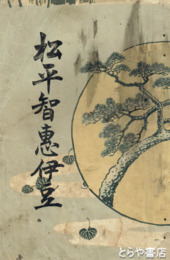 松平智惠伊豆
©とらや書店